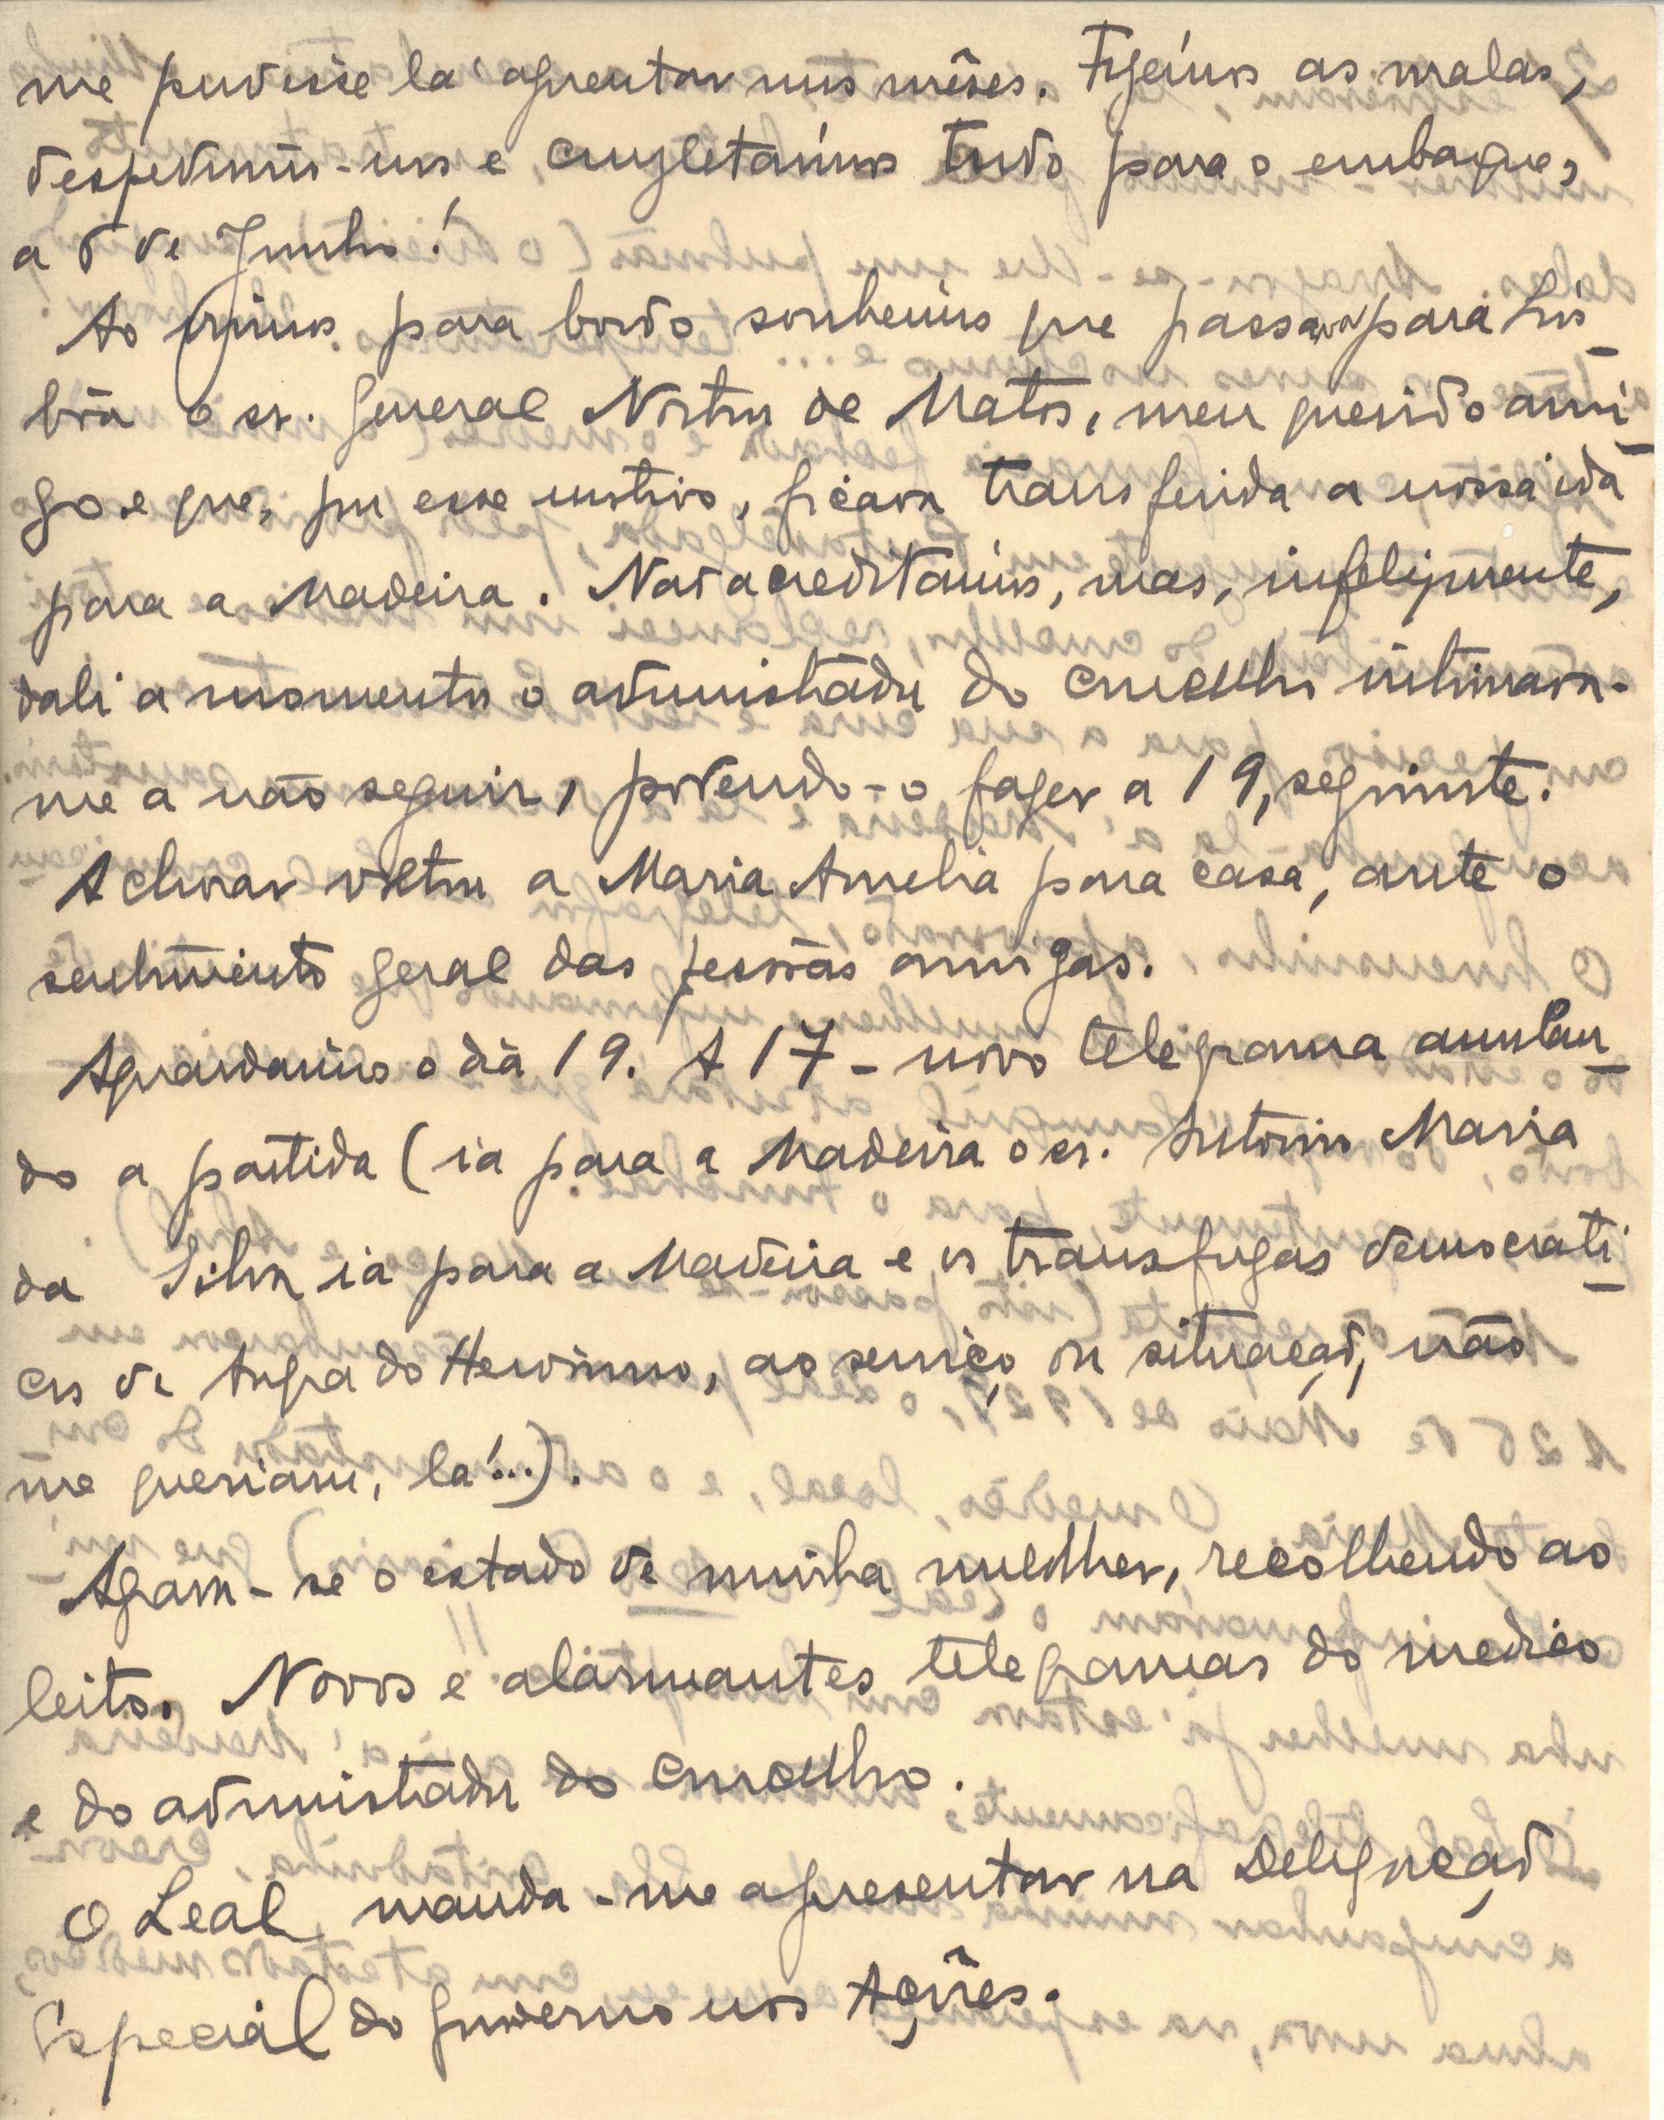 me pudesse la' aguentar uns mêses. Fizémos as malas,
despedimos-nos e completámos tudo para o embarque,
a 6 de Junho!
Ao irmos para bordo soubemos que passava para Lis-
bôa o sr. general Norton de Matos, meu querido ami-
go e que, por esse motivo, ficava transferida a nossa ida
para a Madeira. Não acreditámos, mas, infelizmente,
dali a momentos o administrador do concelho intimava-
me a não seguir, podendo-o fazer a 19, seguinte.
A chorar voltou a Maria Amelia para casa, ante o
sentimento geral das pessôas amigas.
Aguardámos o dia 19. A 17 - novo telegrama anulan-
do a partida (ia para a Madeira o sr. Antonio Maria
da Silva ia para a Madeira e os transfugas democrati-
cos de Angra do Heroismo, ao serviço da situação, não
me queriam, la'...).
Agrava-se o estado de minha mulher, recolhendo ao
leito. Novos e alarmantes telegramas do medico
e do administrador do concelho.
O Leal manda-me apresentar na Delegação
Especial do Governo nos Açôres.